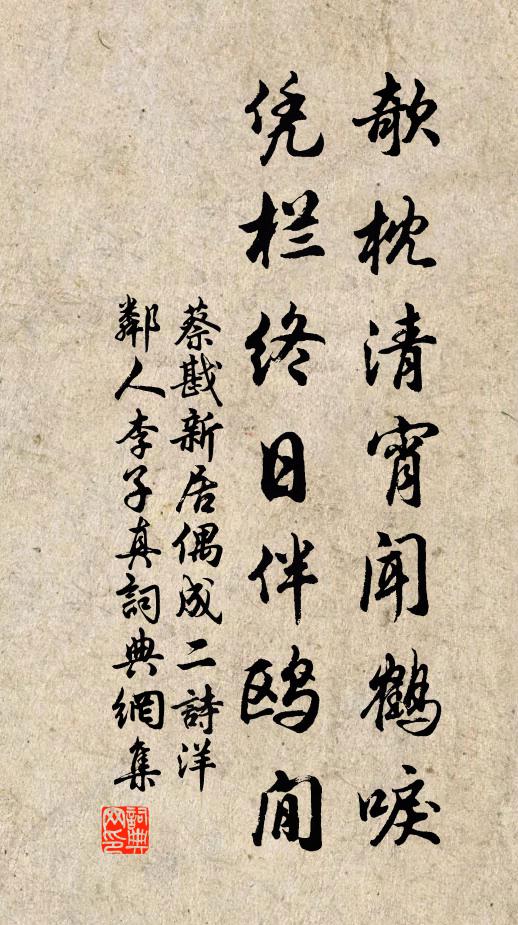 欹枕清宵闻鹤唳
凭栏终日伴鸥闲
蔡戡新居偶成二詩洋
鄰人李子真詞典網集
詞典网印